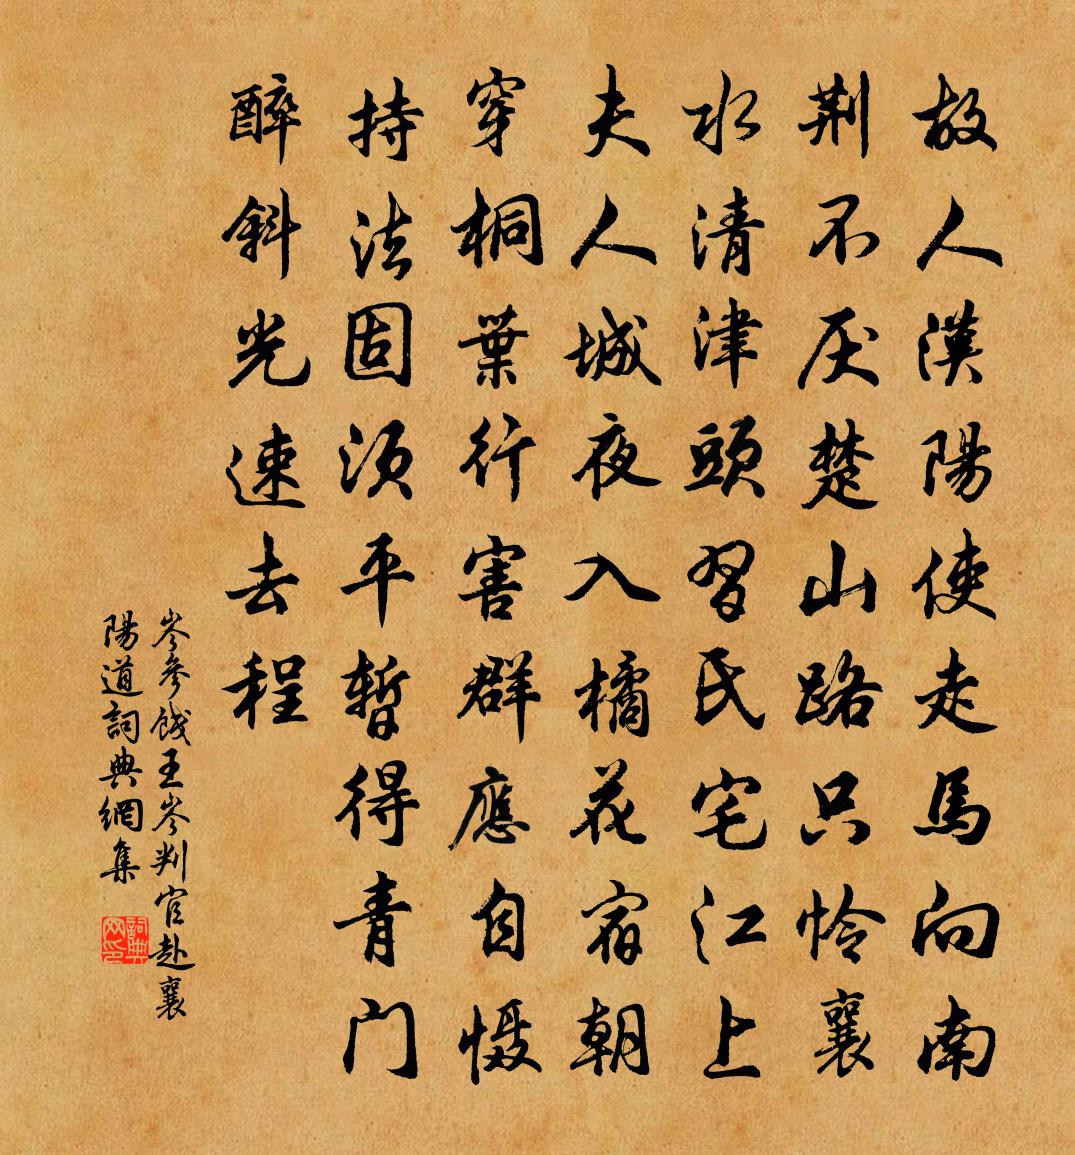 故人漢陽使走馬向南
荆不厌楚山路只怜襄
水清津頭習氏宅江上
夫人城夜入橘花宿朝
穿桐葉行害群應自慑
持法固须平暂得青门
醉斜光速去程
岑參餞王岑判官赴襄
陽道詞典網集
詞典网印